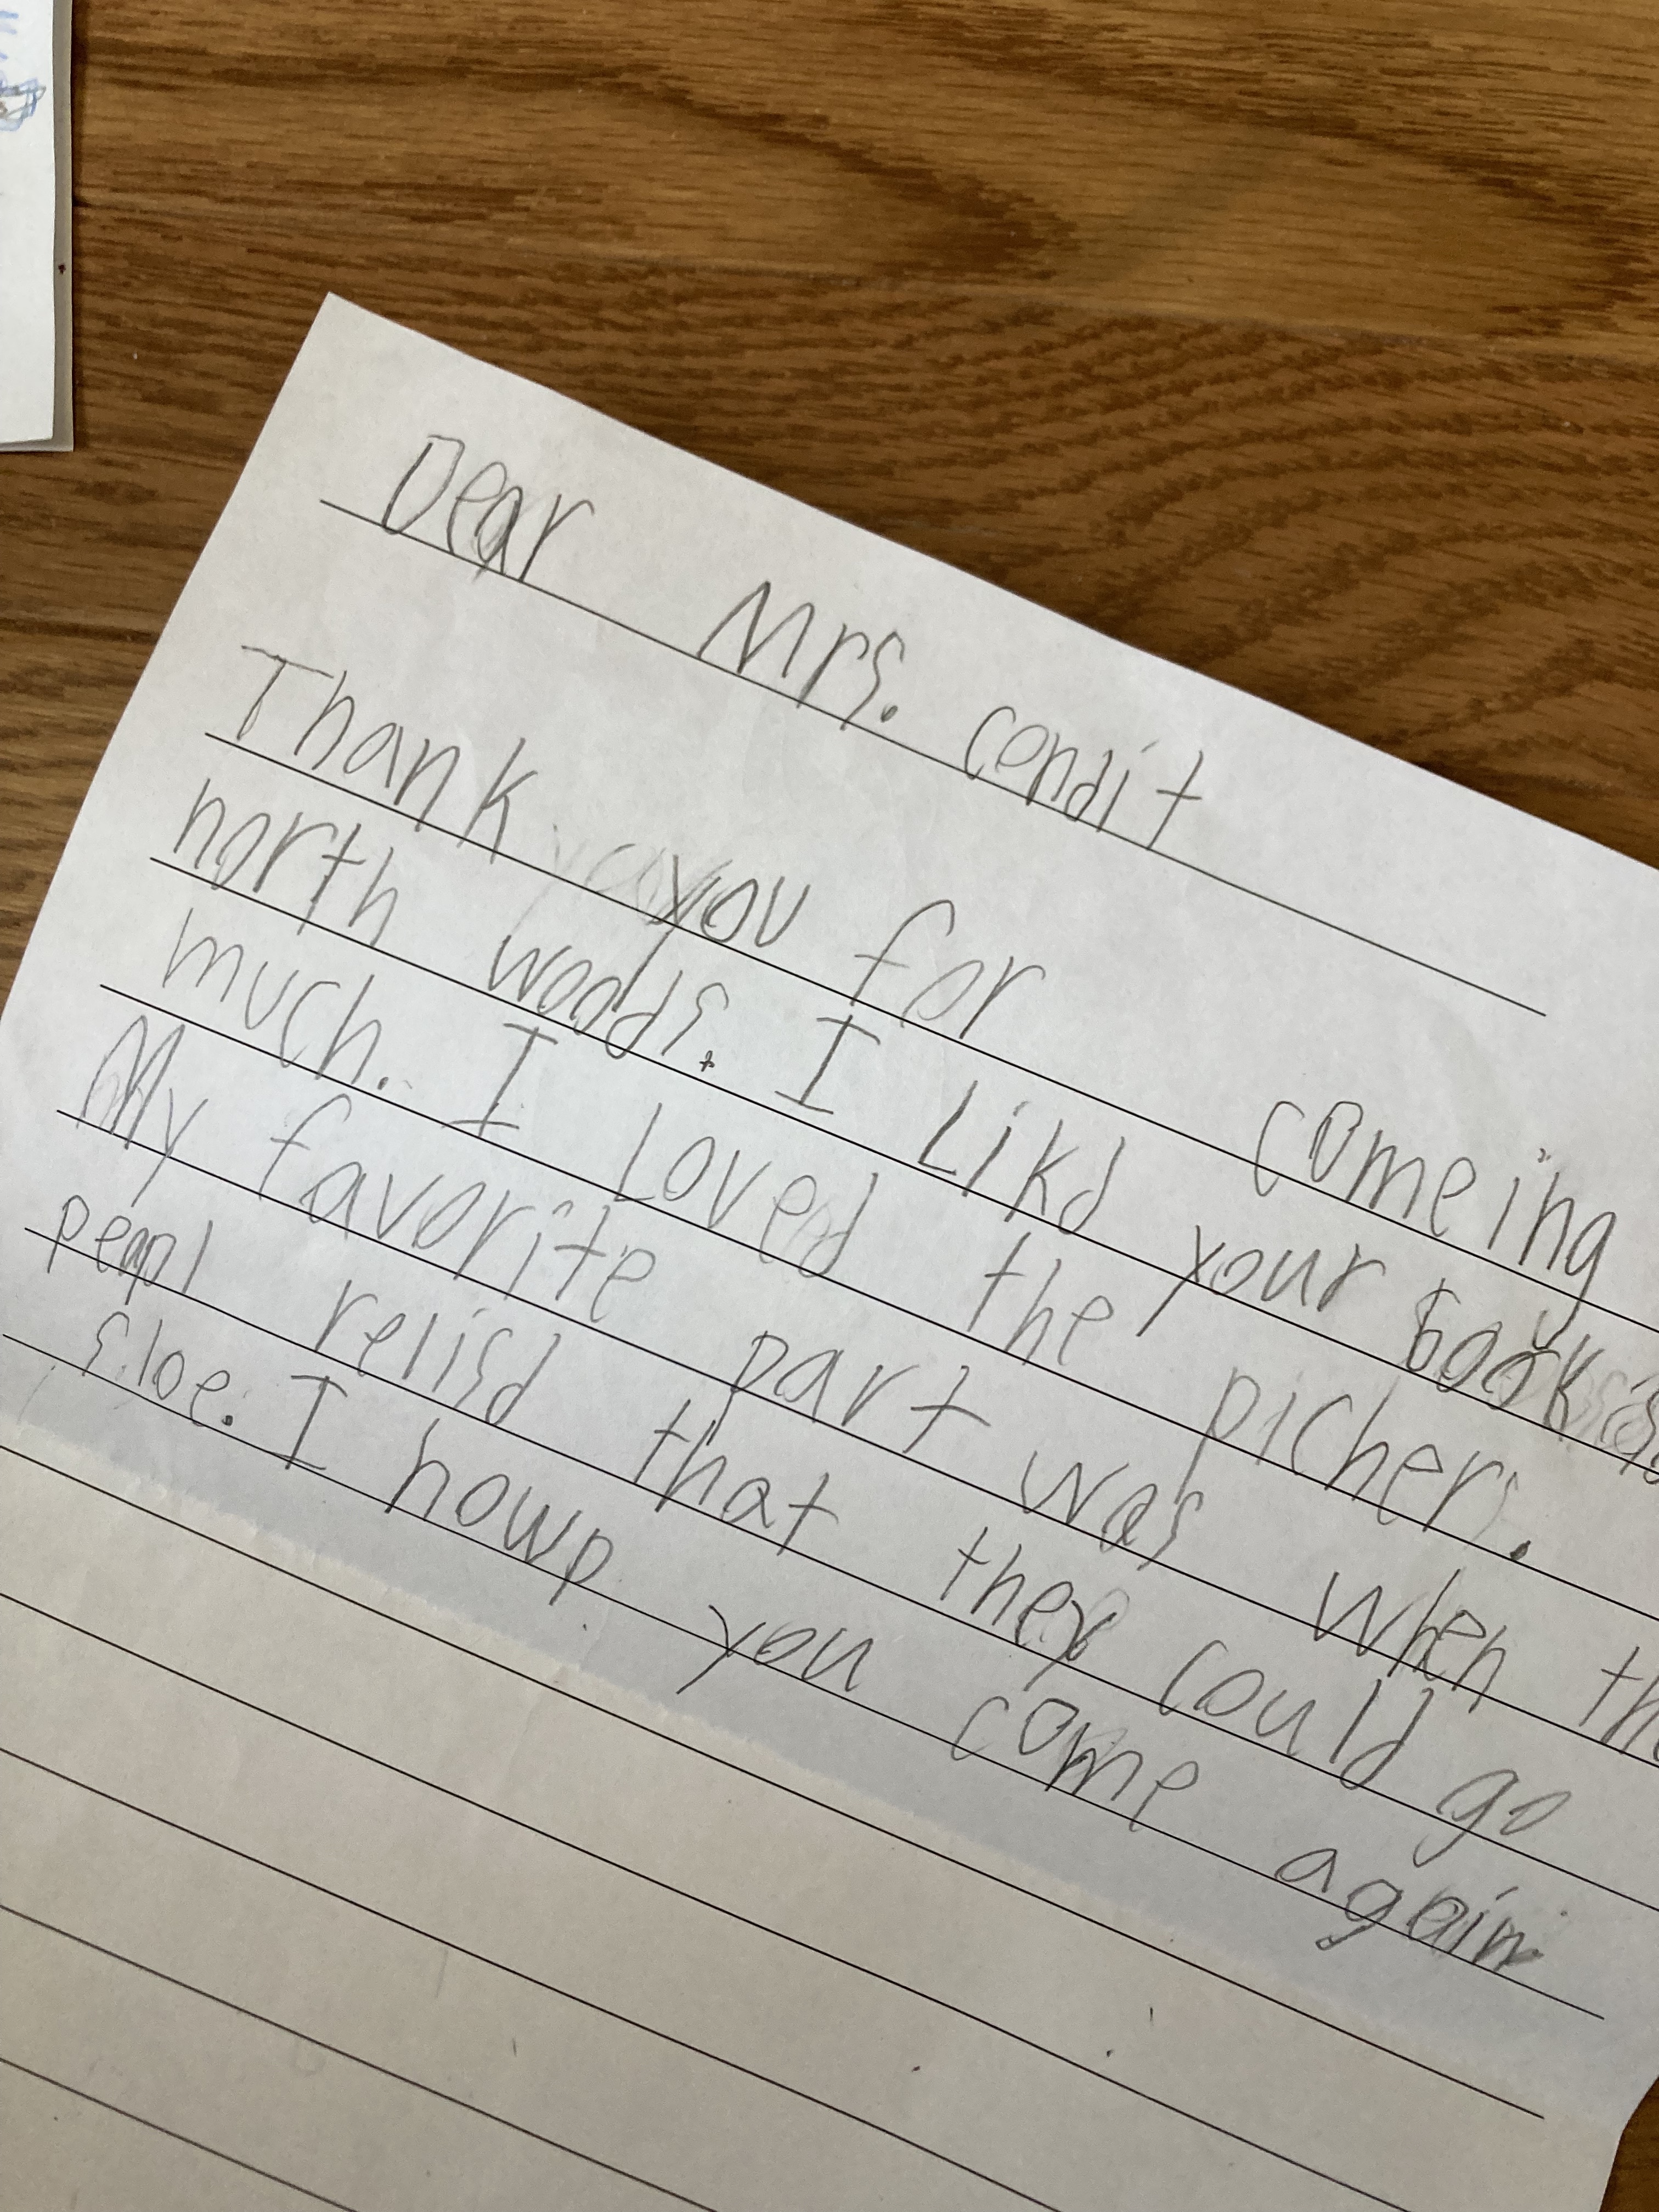 Dear Mrs. condit
Thank you for comeing
north woods. I Likd your book
much. I Loved the pichers.
My favorite part was when
peapl relisd that they could go
sloe. I howp you come again